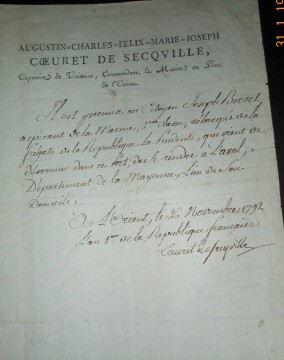 AUGUSTIN=CHARLES=FELIX=MARIE=JOSEPH
CŒURET DE SECQVILLE,
Capitaine de Vaisseau, Commandant la Marine au Port
de l'Orient.
Il est permis au Citoyen Joseph
aspirant de la Marine, classe, débarqué de la
frégate de la République la Prudente, qui vient de
désarmer dans ce Port, de se rendre à Laval,
Département de la Mayenne, Lieu de Son
Domicile.
A l'Orient, le 26 Novembre 1792
l'an 1er de la République française
Cœuret de Secqville
31.1.19